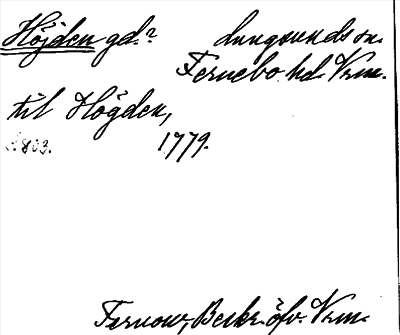 Höjden gd.? Lungsunds sn.
Fernebo hd Vrm.
til Högden,
s. 803. 1779.
Fernow, Beskr. öfv. Vrm.